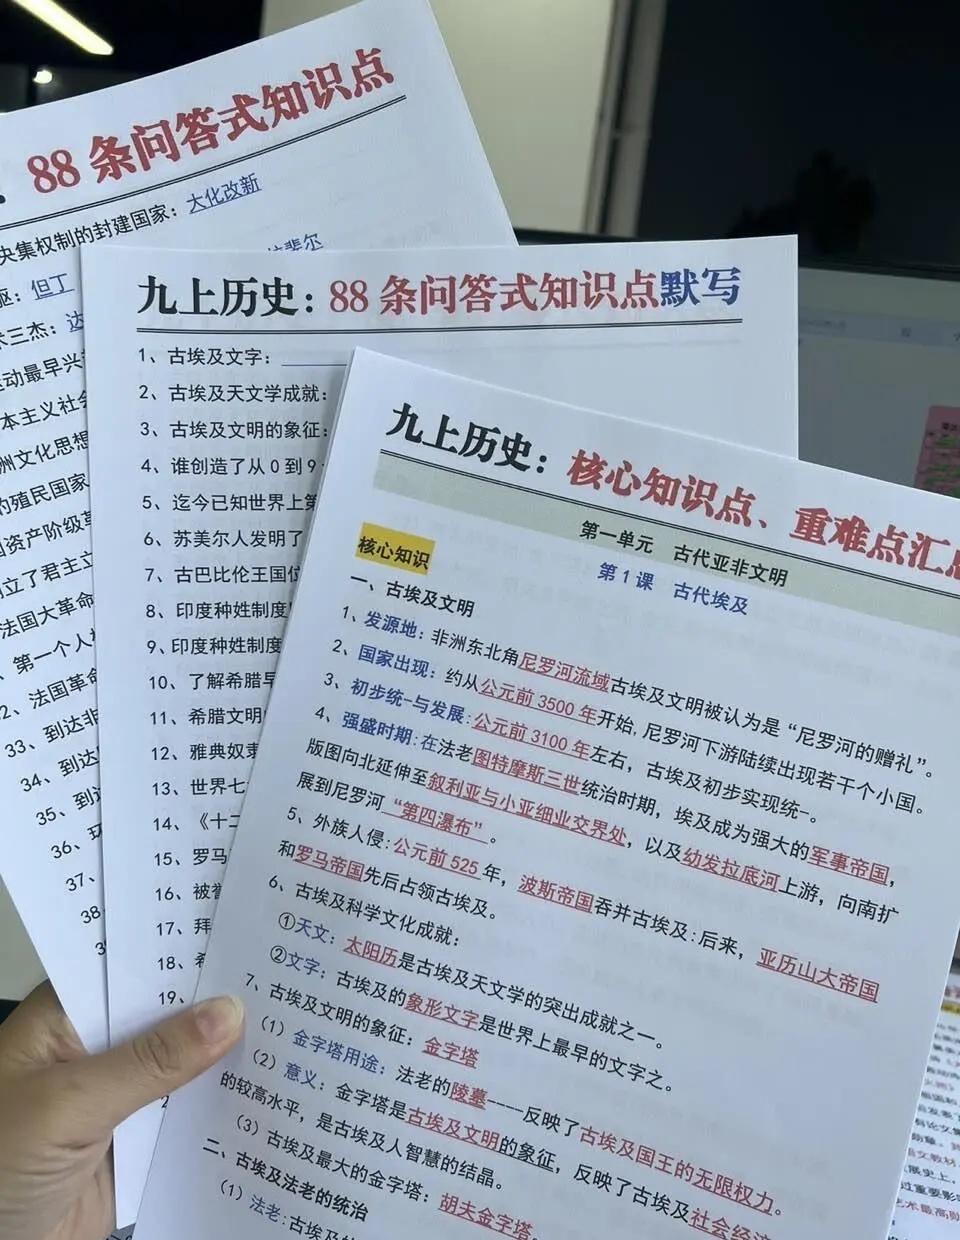 88 条问答式知识点
央集权制的封建国家：大化改新
驱：但丁
术三杰：达
运动最早兴
本主义社会
洲文化思想
的殖民国家
国资产阶级革
创立了君主立
法国大革命
、第一个人
2、法国革命
33、到达非
34、到达
35、到达
36、环
37、
38
九上历史：88 条问答式知识点默写
1、古埃及文字：
2、古埃及天文学成就：
3、古埃及文明的象征：
4、谁创造了从 0 到 9
5、迄今已知世界上第
6、苏美尔人发明了
7、古巴比伦王国位
8、印度种姓制度
9、印度种姓制度
10、了解希腊早
11、希腊文明
12、雅典奴隶
13、世界七
14、《十二
15、罗马
16、被誉
17、拜
18、希
19、
九上历史：核心知识点、重难点汇总
第一单元 古代亚非文明
第 1 课 古代埃及
核心知识
一、古埃及文明
1、发源地：非洲东北角尼罗河流域古埃及文明被认为是“尼罗河的赠礼”。
2、国家出现：约从公元前 3500 年开始, 尼罗河下游陆续出现若干个小国。
3、初步统一与发展：公元前 3100 年左右，古埃及初步实现统一。
4、强盛时期：在法老图特摩斯三世统治时期，埃及成为强大的军事帝国，
版图向北延伸至叙利亚与小亚细业交界处，以及幼发拉底河上游，向南扩
展到尼罗河“第四瀑布”。
5、外族人侵：公元前 525 年，波斯帝国吞并古埃及：后来，亚历山大帝国
和罗马帝国先后占领古埃及。
6、古埃及科学文化成就：
①天文：太阳历是古埃及天文学的突出成就之一。
②文字：古埃及的象形文字是世界上最早的文字之。
7、古埃及文明的象征：金字塔
（1）金字塔用途：法老的陵墓----反映了古埃及国王的无限权力。
（2）意义：金字塔是古埃及文明的象征，反映了古埃及社会经济
的较高水平，是古埃及人智慧的结晶。
（3）古埃及最大的金字塔：胡夫金字塔。
二、古埃及法老的统治
（1）法老：古埃及